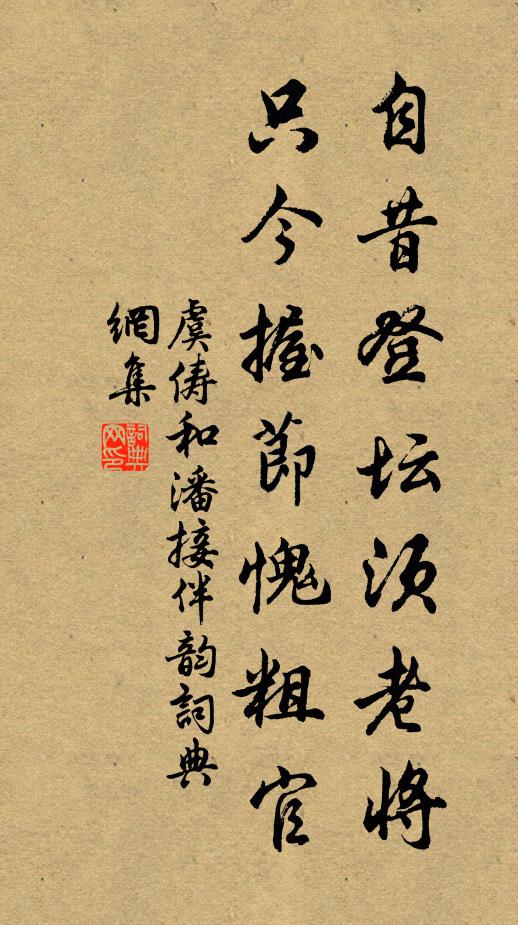 自昔登坛须老将
只今握節愧粗官
虞俦和潘接伴韵詞典
網集
詞典网印